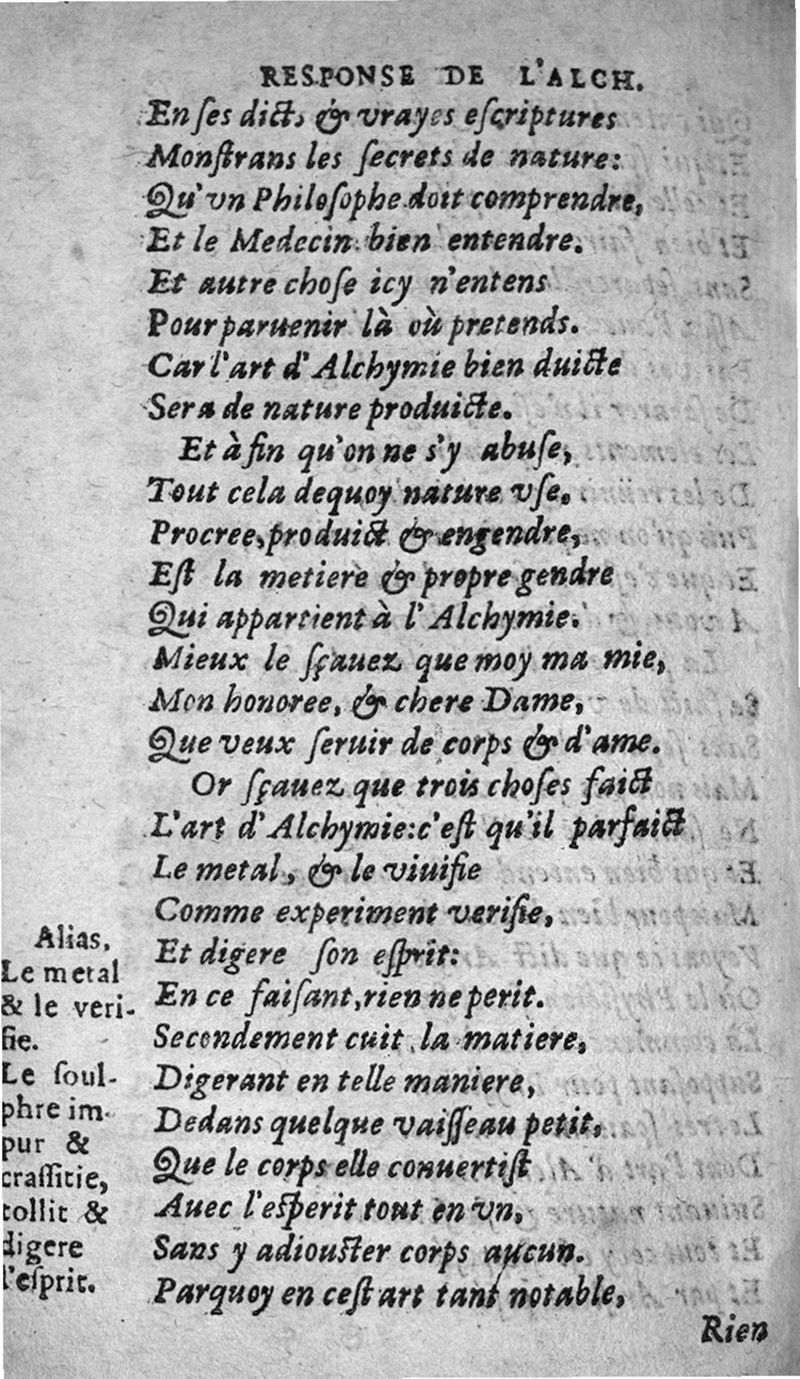 RESPONSE DE L'ALCH.
En ſes dicts & vrayes eſcriptures
Monſtrans les ſecrets de nature:
Qu'vn Philoſophe doit comprendre,
Et le Medecin bien entendre.
Et autre choſe icy n'entens
Pour paruenir là où pretends.
Car l'art d'Alchymie bien duicte
Sera de nature produicte.
Et àfin qu'on ne s'y abuſe,
Tout cela dequoy nature vſe,
Procree, produict & engendre,
Eſt la metiere & propre gendre
Qui appartient à l'Alchymie.
Mieux le ſçauez que moy ma mie,
Mon honoree, & chere Dame,
Que veux ſeruir de corps & d'ame.
Or ſçauez que trois choſes faict
L'art d'Alchymie: c'eſt qu'il parfaict
Le metal, & le viuifie
Comme experiment verifie,
Et digere ſon eſprit:
En ce faiſant, rien ne perit.
Secondement cuit la matiere,
Digerant en telle maniere,
Dedans quelque vaiſſeau petit,
Que le corps elle conuertiſt
Auec l'eſperit tout en vn,
Sans y adiouſter corps aucun.
Parquoy en ceſt art tant notable,
Rien
Alias,
Le metal
& le veri-
fie.
Le ſoul-
phre im-
pur &
craſſitie,
tollit &
digere
l'eſprit.